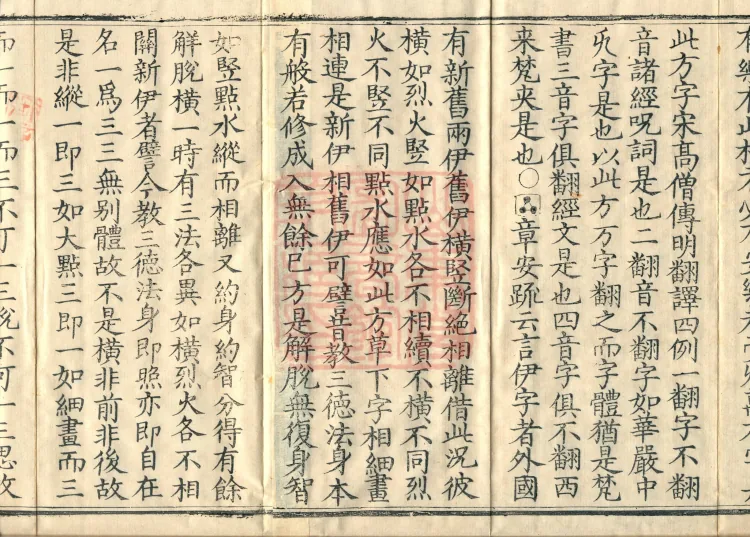 此方字宋高僧傳明翻譯四例一翻字不翻
音諸經呪詞是也二翻音不翻字如華嚴中
字是也以此方万字翻之而字體猶是梵
書三音字俱翻經文是也四音字俱不翻西
来梵夾是也○章安䟽云言伊字者外國
有新舊兩伊舊伊橫竪斷絕相離借此況彼
橫如烈火竪如點水各不相續不橫不同烈
火不竪不同點水應如此方草下字相細畫
相連是新伊相舊伊可譬昔教三德法身本
有般若修成入無餘已方是解脫無復身智
如竪點水縱而相離又約身約智分得有餘
解脫橫一時有三法各異如橫烈火各不相
關新伊者譬今教三德法身即照亦即自在
名一爲三三無別體故不是橫非前非後故
是非縱一即三如大點三即一如細畫而三
而一而一而三不可一三說不可一三思故